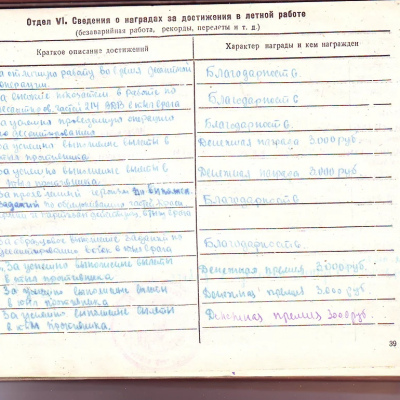 Отдел VI. Сведения о наградах за достижения в летной работе
(безаварийная работа, рекорды, перелеты и т. д.)
Краткое описание достижений
Характер награды и кем награжден
За отличную работу во время десантной
операции.
Благодарность.
За высокие показатели в работе по
в тыл врага
Благодарность
За успешно проведенную операцию
по десантированию
Благодарность.
За успешно выполненные вылеты
в тыл противника
Денежная награда 3000 руб.
За успешно выполненные вылеты в
тыл противника.
Денежная награда 3.000 руб.
заданий по обслуживанию
врага
Благодарность
За образцовое выполнение заданий по
десантированию войск в тыл врага
Благодарность.
За успешно выполненные вылеты
в тыл противника.
Денежная премия 3.000 руб.
За успешно выполненные вылеты
в тыл противника
Денежная премия 3.000 руб.
За успешно выполненные вылеты
в тыл противника.
Денежная премия 3000 руб.
39